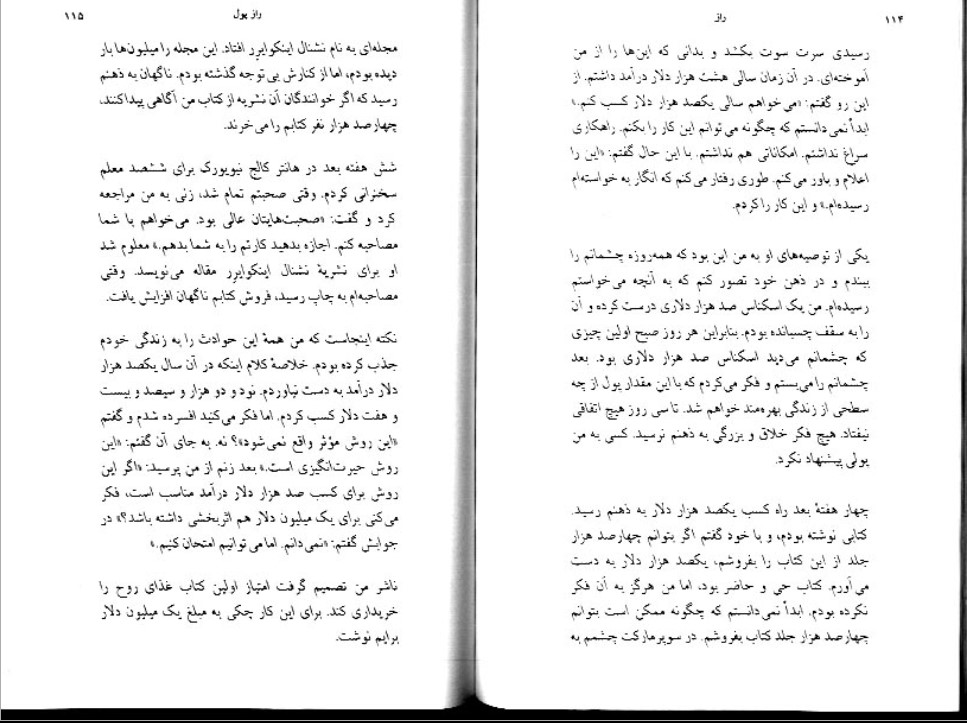 ۱۱۴
راز
رسیدی سرت سوت بکشد و بدانی که این‌ها را از من
آموخته‌ای. در آن زمان سالی هشت هزار دلار درآمد داشتم. از
این رو گفتم: «می‌خواهم سالی یکصد هزار دلار کسب کنم.»
ابداً نمی‌دانستم که چگونه می‌توانم این کار را بکنم. راهکاری
سراغ نداشتم. امکاناتی هم نداشتم. با این حال گفتم: «این را
اعلام و باور می‌کنم. طوری رفتار می‌کنم که انگار به خواسته‌ام
رسیده‌ام.» و این کار را کردم.
یکی از توصیه‌های او به من این بود که همه‌روزه چشمانم را
ببندم و در ذهن خود تصور کنم که به آنچه می‌خواستم
رسیده‌ام. من یک اسکناس صد هزار دلاری درست کرده و آن
را به سقف چسبانده بودم. بنابراین هر روز صبح اولین چیزی
که چشمانم می‌دید اسکناس صد هزار دلاری بود. بعد
چشمانم را می‌بستم و فکر می‌کردم که با این مقدار پول از چه
سطحی از زندگی بهره‌مند خواهم شد. تا سی روز هیچ اتفاقی
نیفتاد. هیچ فکر خلاق و بزرگی به ذهنم نرسید. کسی به من
پولی پیشنهاد نکرد.
چهار هفتهٔ بعد راه کسب یکصد هزار دلار به ذهنم رسید.
کتابی نوشته بودم، و با خود گفتم اگر بتوانم چهارصد هزار
جلد از این کتاب را بفروشم، یکصد هزار دلار به دست
می‌آورم. کتاب حی و حاضر بود، اما من هرگز به آن فکر
نکرده بودم. ابداً نمی‌دانستم که چگونه ممکن است بتوانم
چهارصد هزار جلد کتاب بفروشم. در سوپرمارکت چشمم به
راز پول
۱۱۵
مجله‌ای به نام نشنال اینکوایرر افتاد. این مجله را میلیون‌ها بار
دیده بودم، اما از کنارش بی‌توجه گذشته بودم. ناگهان به ذهنم
رسید که اگر خوانندگان آن نشریه از کتاب من آگاهی پیدا کنند،
چهارصد هزار نفر کتابم را می‌خرند.
شش هفته بعد در هانتر کالج نیویورک برای ششصد معلم
سخنرانی کردم. وقتی صحبتم تمام شد، زنی به من مراجعه
کرد و گفت: «صحبت‌هایتان عالی بود. می‌خواهم با شما
مصاحبه کنم. اجازه بدهید کارتم را به شما بدهم.» معلوم شد
او برای نشریهٔ نشنال اینکوایرر مقاله می‌نویسد. وقتی
مصاحبه‌ام به چاپ رسید، فروش کتابم ناگهان افزایش یافت.
نکته اینجاست که من همهٔ این حوادث را به زندگی خودم
جذب کرده بودم. خلاصهٔ کلام اینکه در آن سال یکصد هزار
دلار درآمد به دست نیاوردم. نود و دو هزار و سیصد و بیست
و هفت دلار کسب کردم. اما فکر می‌کنید افسرده شدم و گفتم
«این روش مؤثر واقع نمی‌شود»؟ نه. به جای آن گفتم: «این
روش حیرت‌انگیزی است.» بعد زنم از من پرسید: «اگر این
روش برای کسب صد هزار دلار درآمد مناسب است، فکر
می‌کنی برای یک میلیون دلار هم اثربخشی داشته باشد؟» در
جوابش گفتم: «نمی‌دانم. اما می‌توانیم امتحان کنیم.»
ناشر من تصمیم گرفت امتیاز اولین کتاب غذای روح را
خریداری کند. برای این کار چکی به مبلغ یک میلیون دلار
برایم نوشت.